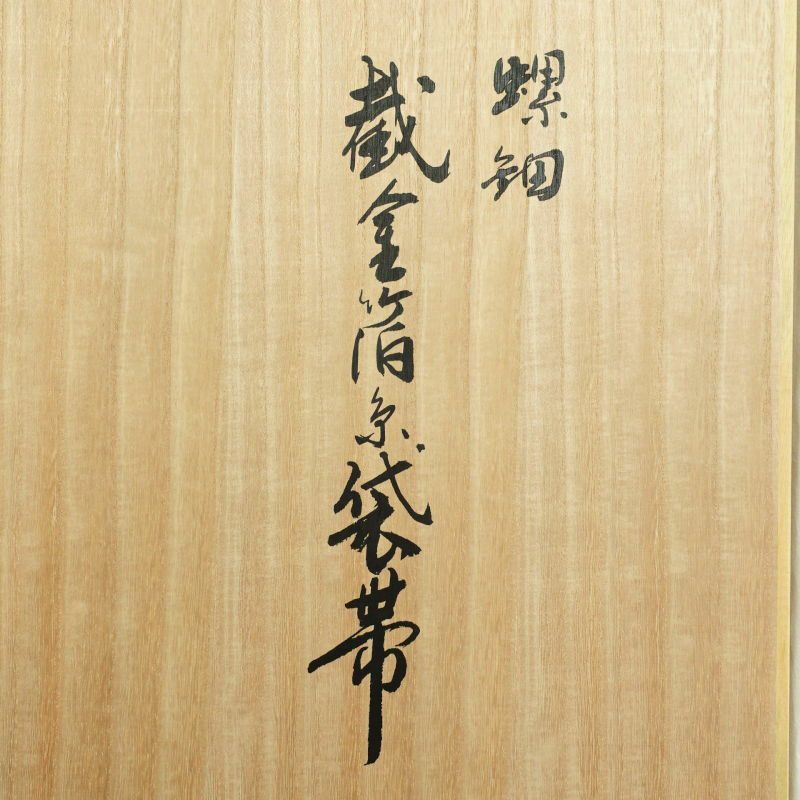 螺鈿
截金箔糸袋帯